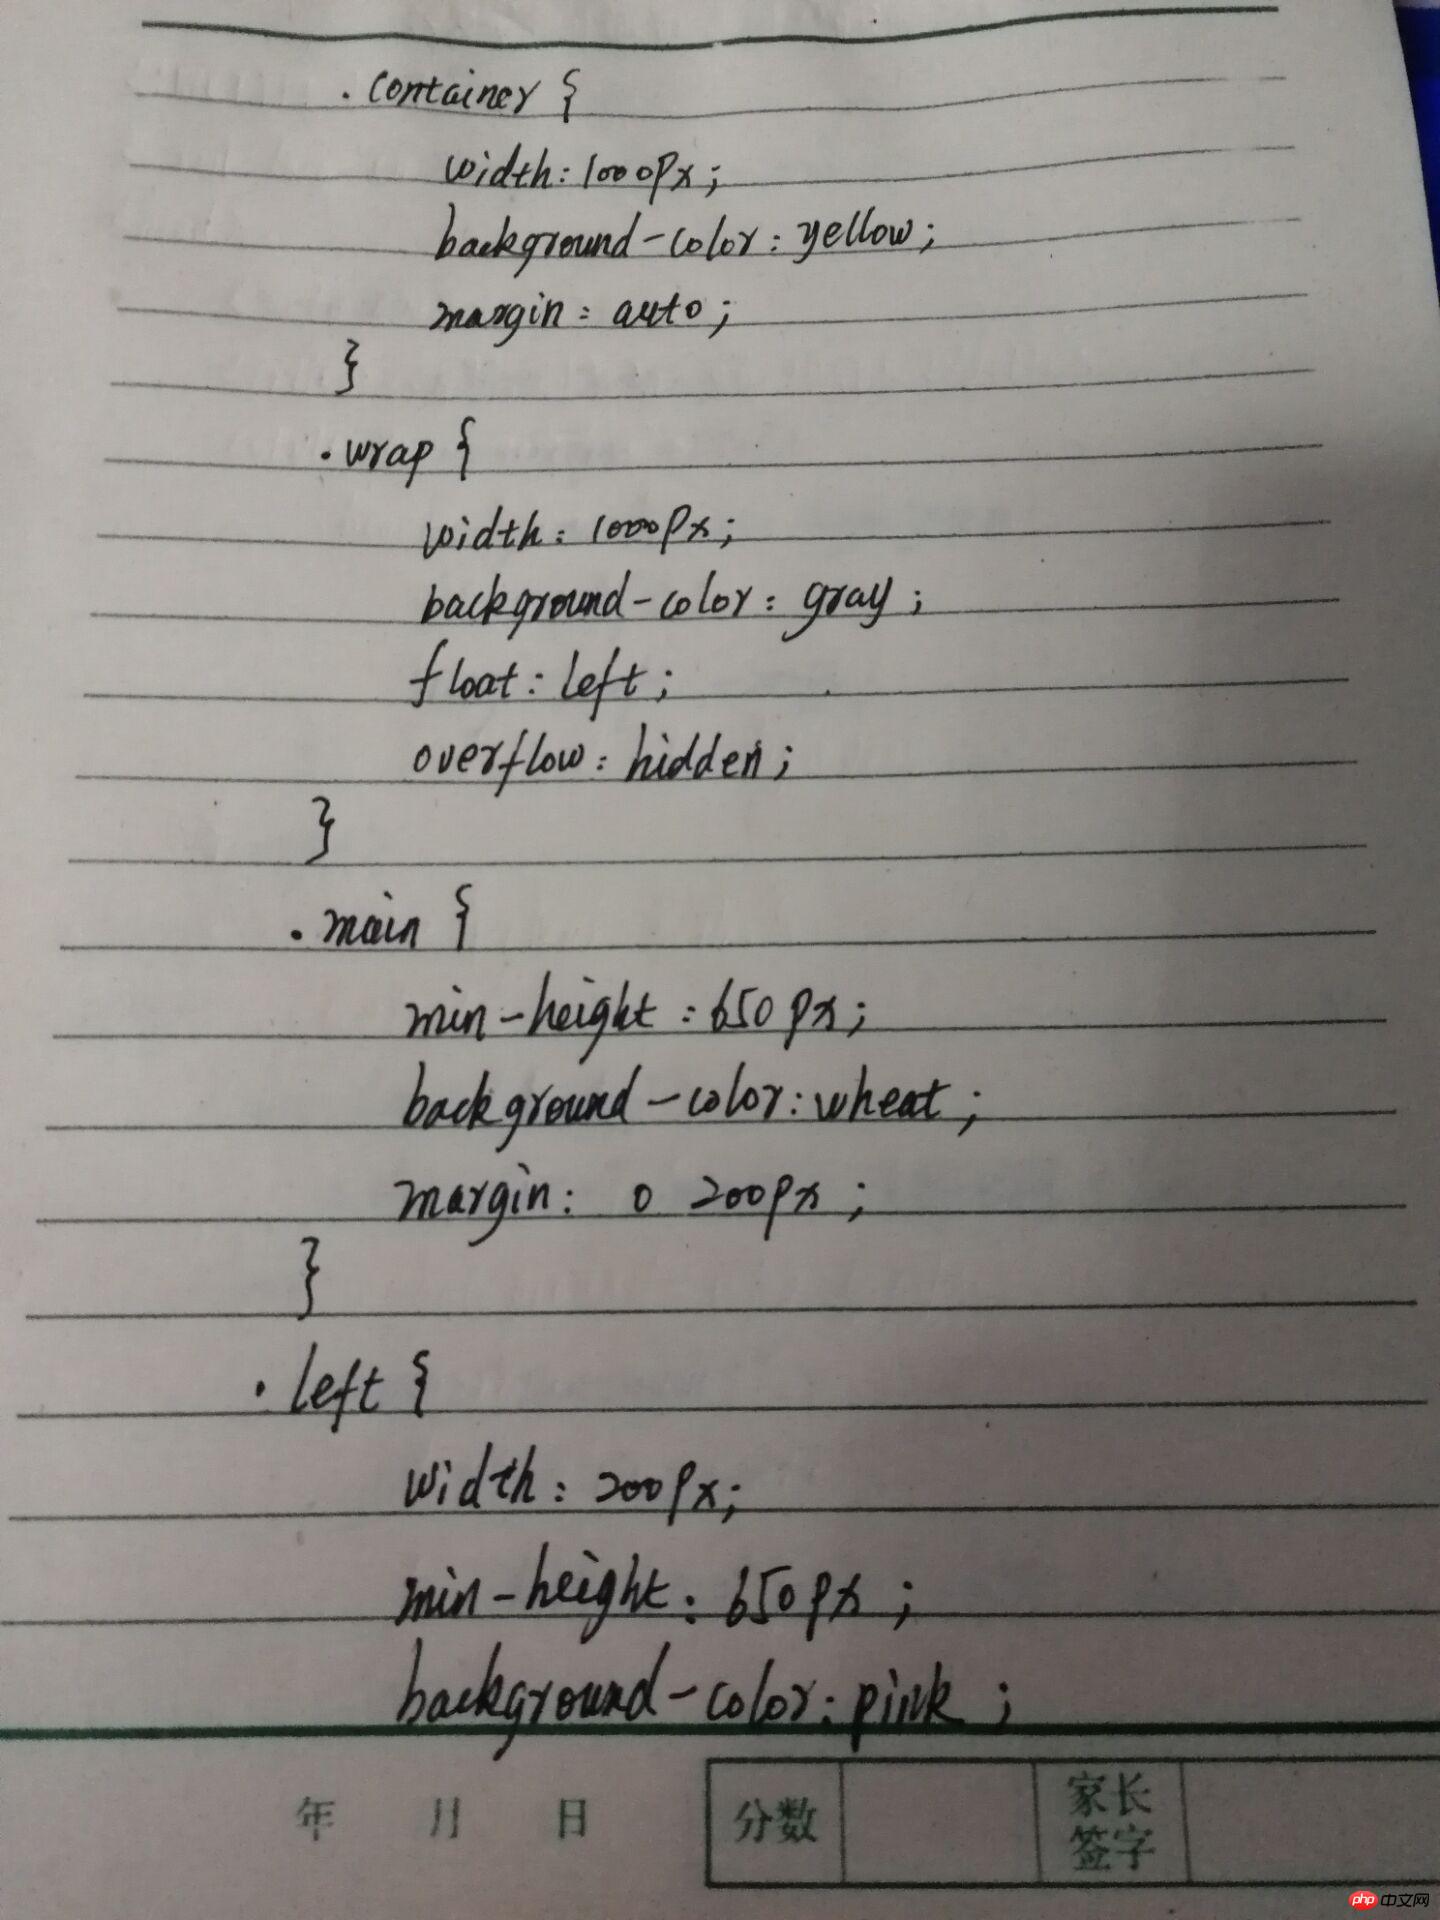 .container {
width: 1000px;
background-color: yellow;
margin: auto;
}
.wrap {
width: 1000px;
background-color: gray;
float: left;
overflow: hidden;
}
.main {
min-height: 650px;
background-color: wheat;
margin: 0 200px;
}
.left {
width: 200px;
min-height: 650px;
background-color: pink;
年 月 日 分数 家长
签字
php中文网